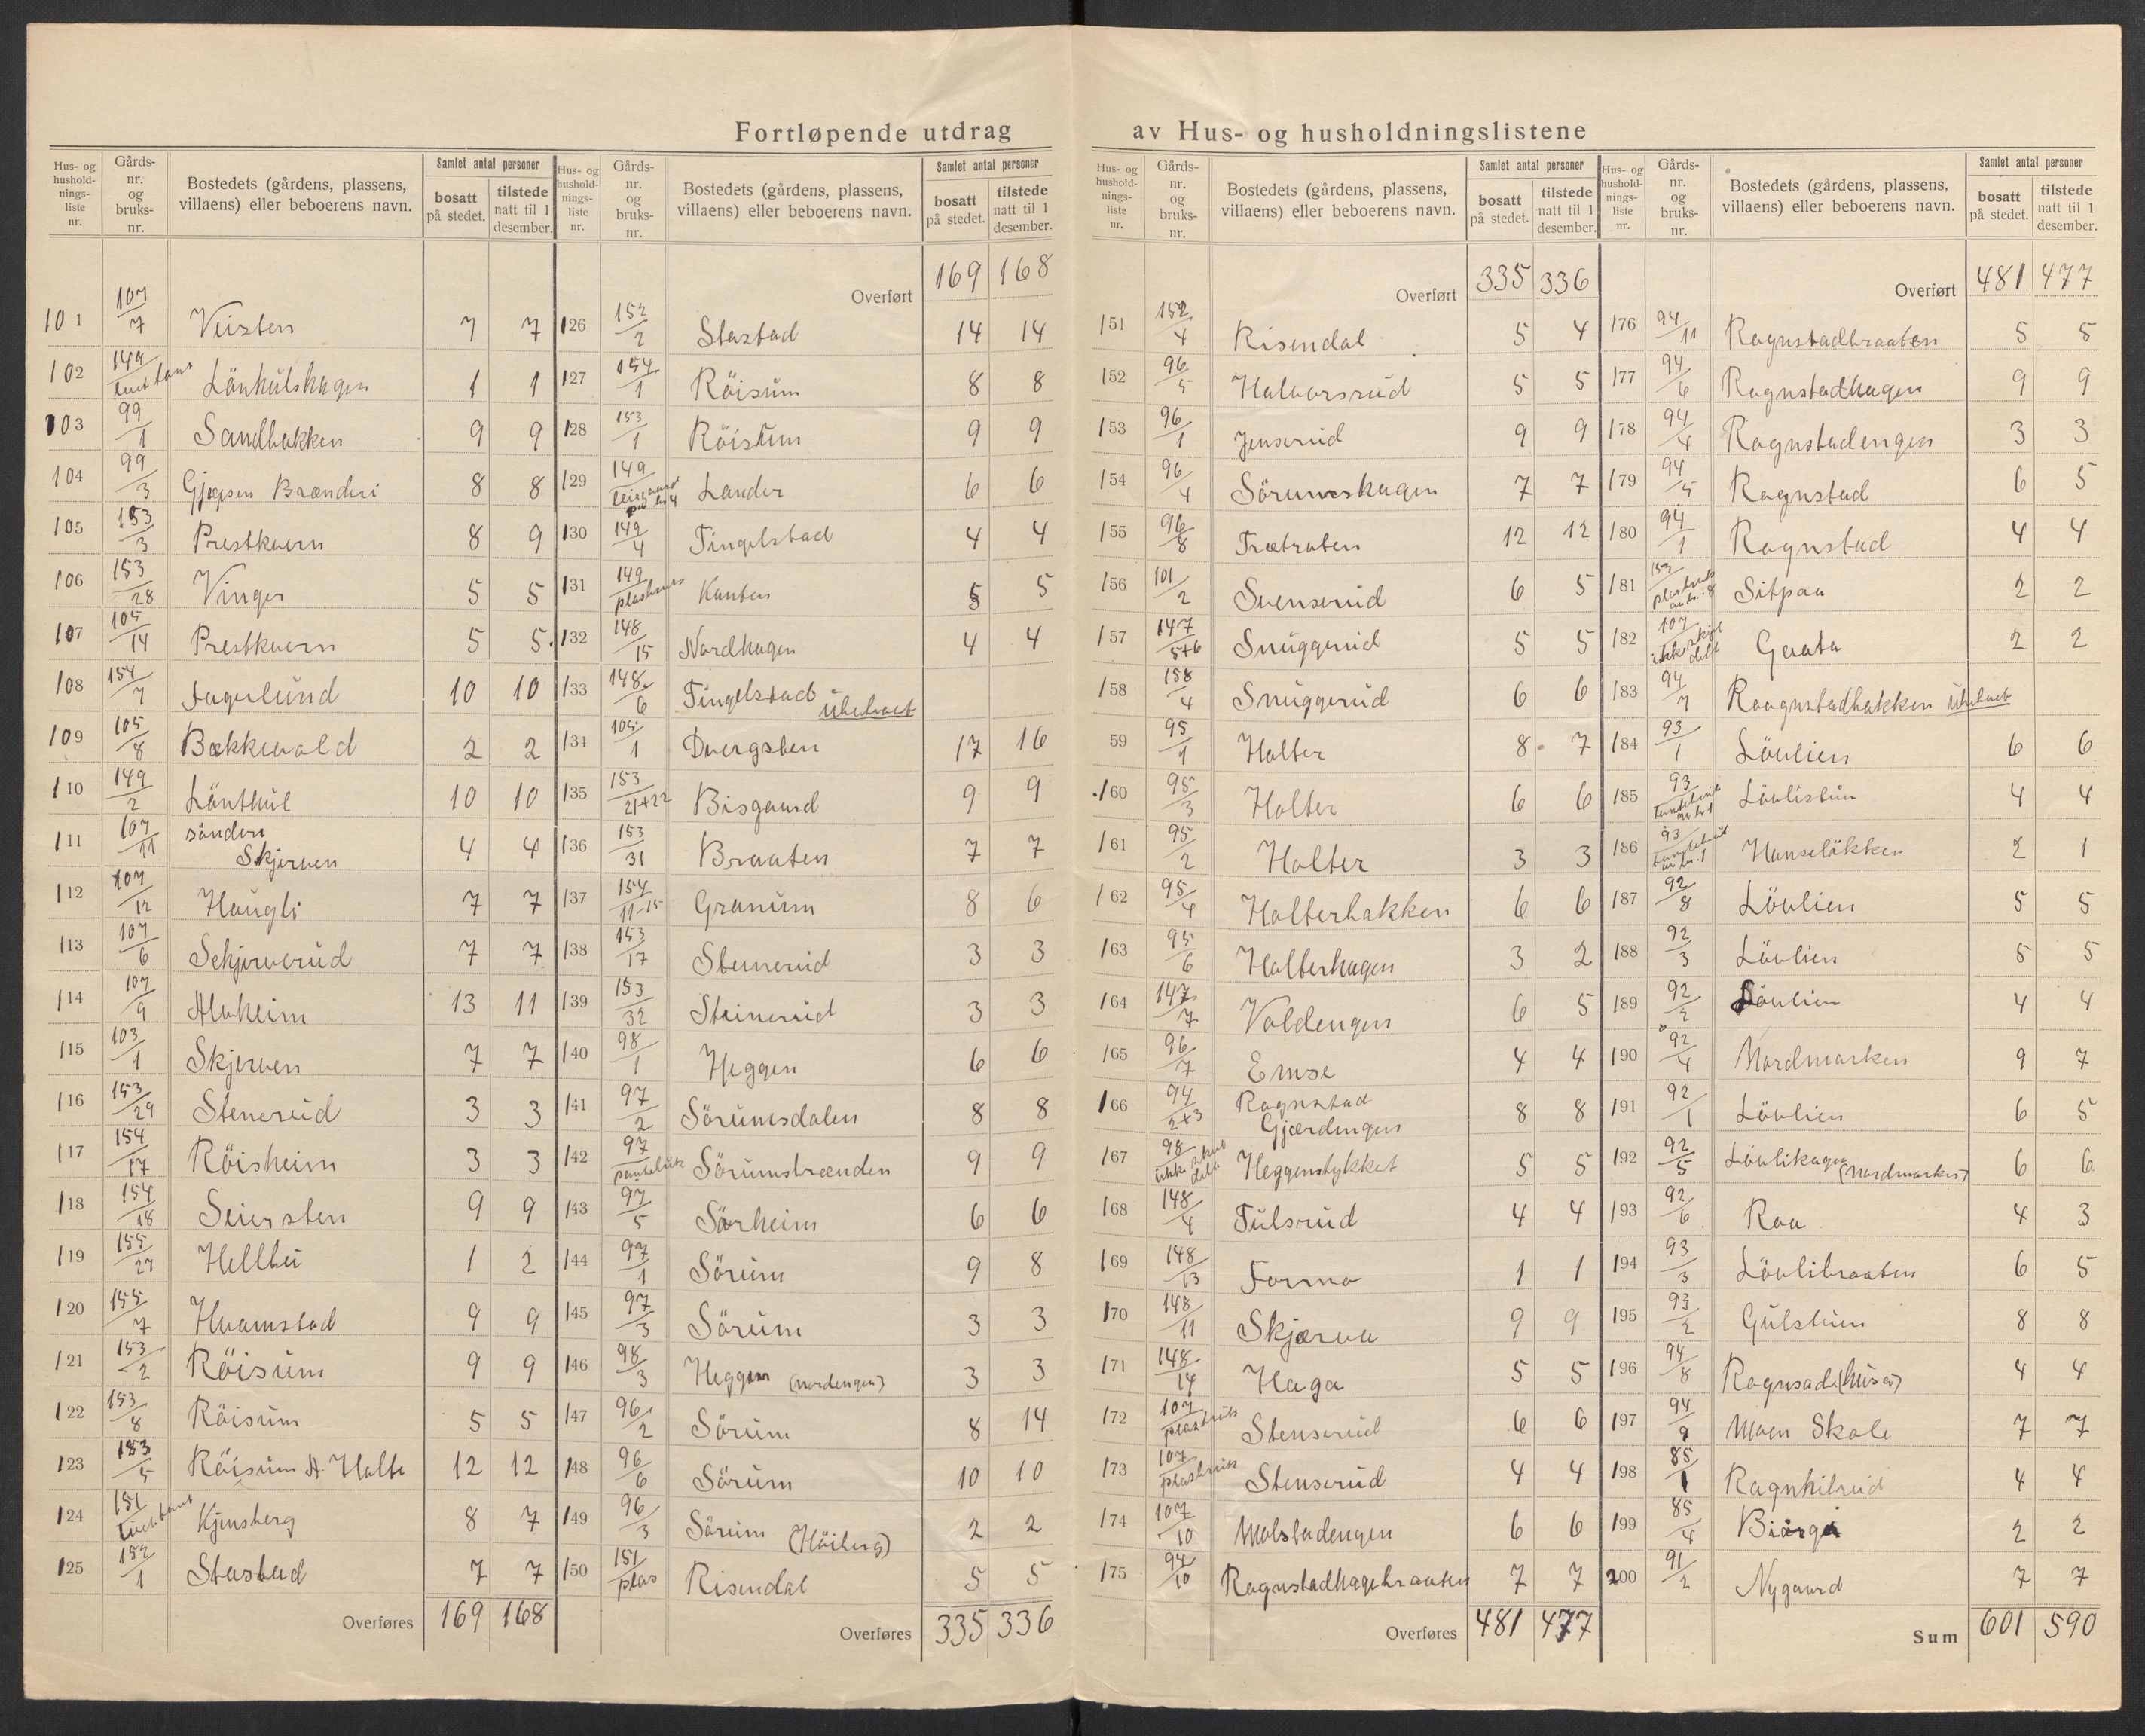 Fortløpende utdrag av Hus- og husholdningslistene
Hus- og hushold-nings-liste nr. | Gårds-nr. og bruks-nr. | Bostedets (gårdens, plassens, villaens) eller beboerens navn. | Samlet antal personer | bosatt på stedet. | tilstede natt til 1 desember.
101 | 107/7 | Veisten | 7 | 7
102 | 149/ | Lönhulshagen | 1 | 1
103 | 99/1 | Sandbakken | 9 | 9
104 | 99/3 | Gjepsen Brænderi | 8 | 8
105 | 153/3 | Prestkvern | 8 | 9
106 | 153/28 | Vinger | 5 | 5
107 | 105/14 | Prestkvern | 5 | 5
108 | 154/7 | Fagerlund | 10 | 10
109 | 105/8 | Bækkevold | 2 | 2
110 | 149/2 | Lönthul | 10 | 10
111 | 107/11 | söndere Skjerven | 4 | 4
112 | 107/12 | Haugli | 7 | 7
113 | 107/6 | Schjerverud | 7 | 7
114 | 107/9 | Alvheim | 13 | 11
115 | 103/1 | Skjerven | 7 | 7
116 | 153/29 | Stenerud | 3 | 3
117 | 154/17 | Röisheim | 3 | 3
118 | 154/18 | Seiersten | 9 | 9
119 | 155/27 | Hellbei | 1 | 2
120 | 155/7 | Hvamstad | 9 | 9
121 | 153/2 | Röisum | 9 | 9
122 | 153/8 | Röisum | 5 | 5
123 | 153/5 | Röisum A. Holte | 12 | 12
124 | 151/ | Kjensberg | 8 | 7
125 | 152/1 | Stastad | 7 | 7
Overføres | 169 | 168
Hus- og hushold-nings-liste nr. | Gårds-nr. og bruks-nr. | Bostedets (gårdens, plassens, villaens) eller beboerens navn. | Samlet antal personer | bosatt på stedet. | tilstede natt til 1 desember.
Overført | 169 | 168
126 | 152/2 | Stastad | 14 | 14
127 | 154/1 | Röisum | 8 | 8
128 | 153/1 | Röisum | 9 | 9
129 | 149/ | Lander | 6 | 6
130 | 149/4 | Tingelstad | 4 | 4
131 | 149/plasbruk | Kanten | 5 | 5
132 | 148/15 | Nordhagen | 4 | 4
133 | 148/6 | Tingelstad ubeboet
134 | 105/1 | Dvergsten | 17 | 16
135 | 153/21+22 | Bisgaard | 9 | 9
136 | 153/31 | Braaten | 7 | 7
137 | 154/11-15 | Granum | 8 | 6
138 | 153/17 | Stenerud | 3 | 3
139 | 153/32 | Steinerud | 3 | 3
140 | 98/1 | Heggen | 6 | 6
141 | 97/2 | Sörumsdalen | 8 | 8
142 | 97/ | Sörumsbrænden | 9 | 9
143 | 97/5 | Sörheim | 6 | 6
144 | 97/1 | Sörum | 9 | 8
145 | 97/3 | Sörum | 3 | 3
146 | 98/3 | Heggen (nordengen) | 3 | 3
147 | 96/2 | Sörum | 8 | 14
148 | 96/6 | Sörum | 10 | 10
149 | 96/3 | Sörum (Höiberg) | 2 | 2
150 | 151/plas | Risendal | 5 | 5
Overføres | 335 | 336
Hus- og hushold-nings-liste nr. | Gårds-nr. og bruks-nr. | Bostedets (gårdens, plassens, villaens) eller beboerens navn. | Samlet antal personer | bosatt på stedet. | tilstede natt til 1 desember.
Overført | 335 | 336
151 | 152/4 | Risendal | 5 | 4
152 | 96/5 | Halvorsrud | 5 | 5
153 | 96/1 | Jenserud | 9 | 9
154 | 96/4 | Sörumshagen | 7 | 7
155 | 96/8 | Trætraten | 12 | 12
156 | 101/2 | Svenserud | 6 | 5
157 | 147/5+6 | Snuggerud | 5 | 5
158 | 158/4 | Snuggerud | 6 | 6
59 | 95/1 | Holter | 8 | 7
160 | 95/3 | Holter | 6 | 6
161 | 95/2 | Holter | 3 | 3
162 | 95/4 | Holterbakken | 6 | 6
163 | 95/6 | Holterhagen | 3 | 2
164 | 147/7 | Voldengen | 6 | 5
165 | 96/7 | Emse | 4 | 4
166 | 94/2+3 | Rognstad Gjærdingen | 8 | 8
167 | 98/ikke skyld delt | Heggenstykket | 5 | 5
168 | 148/4 | Tulsrud | 4 | 4
169 | 148/13 | Formo | 1 | 1
170 | 148/11 | Skjærva | 9 | 9
171 | 148/14 | Haga | 5 | 5
172 | 107/plasbruk | Stenserud | 6 | 6
173 | 107/plasbruk | Stenserud | 4 | 4
174 | 107/10 | Molstadengen | 6 | 6
175 | 94/10 | Rognstadhagebraaten | 7 | 7
Overføres | 481 | 477
Hus- og hushold-nings-liste nr. | Gårds-nr. og bruks-nr. | Bostedets (gårdens, plassens, villaens) eller beboerens navn. | Samlet antal personer | bosatt på stedet. | tilstede natt til 1 desember.
Overført | 481 | 477
176 | 94/11 | Rognstadbraaten | 5 | 5
177 | 94/6 | Rognstadhagen | 9 | 9
178 | 94/4 | Rognstadengen | 3 | 3
179 | 94/5 | Rognstad | 6 | 5
180 | 94/1 | Rognstad | 4 | 4
181 | 153/ | Sitpaa | 2 | 2
182 | 107/ikke skyld delt | Gaata | 2 | 2
183 | 94/7 | Roognstadbakken ubeboet
184 | 93/1 | Lövlien | 6 | 6
185 | 93/ | Lövlistun | 4 | 4
186 | 93/ | Hanselökken | 2 | 1
187 | 92/8 | Lövlien | 5 | 5
188 | 92/3 | Lövlien | 5 | 5
189 | 92/2 | Lövlien | 4 | 4
190 | 92/4 | Nordmarken | 9 | 7
191 | 92/1 | Lövlien | 6 | 5
192 | 92/5 | Lövlihagen (nordmarken) | 6 | 6
193 | 92/6 | Roa | 4 | 3
194 | 93/3 | Lövlibraaten | 6 | 5
195 | 93/2 | Gulstuen | 8 | 8
196 | 94/8 | Rognsad (husa) | 4 | 4
197 | 94/9 | Moen Skole | 7 | 7
198 | 85/1 | Ragnhilrud | 4 | 4
199 | 85/4 | Biörge | 2 | 2
200 | 91/2 | Nygaard | 7 | 7
Sum | 601 | 590